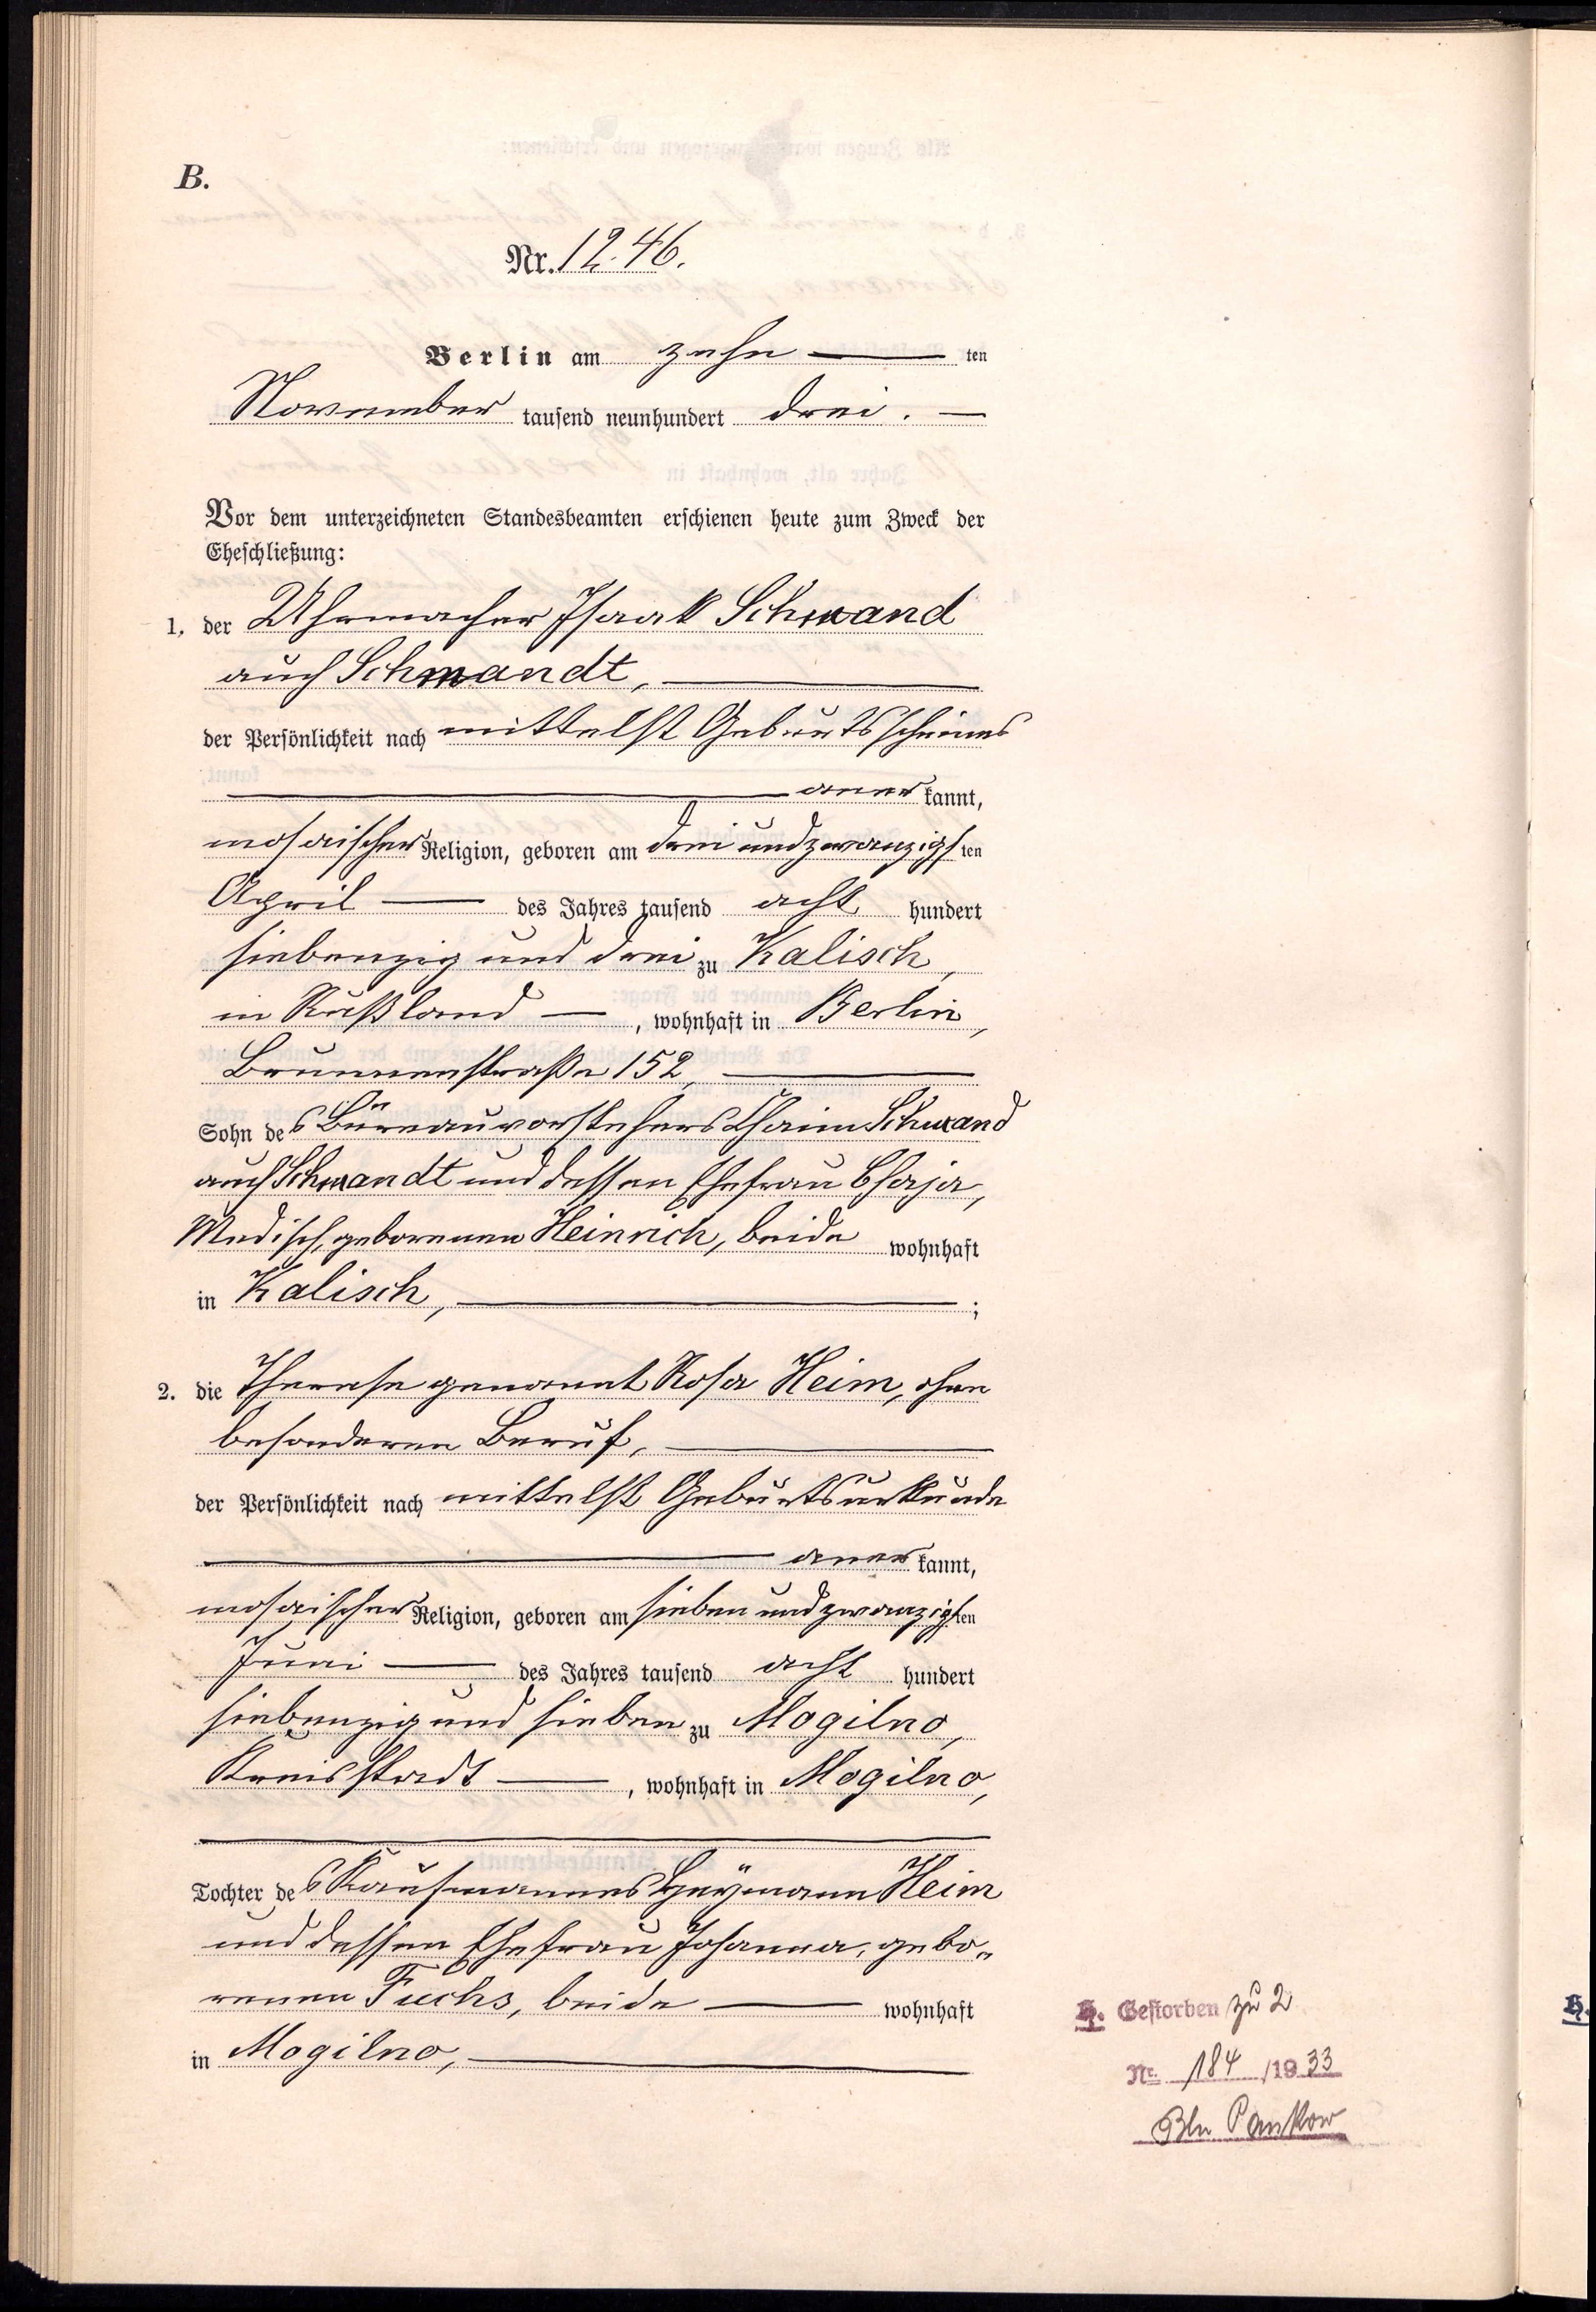 B.
Nr. 1246.
Berlin am zehn ten
November tausend neunhundert drei.
Vor dem unterzeichneten Standesbeamten erschienen heute zum Zweck der
Eheschließung:
1. der Uhrmacher Isaak Schmand
auch Schmandt,
der Persönlichkeit nach mittelst Geburtsscheines
aner kannt,
mosaischer Religion, geboren am drei und zwanzigsten
April des Jahres tausend acht hundert
siebenzig und drei zu Kalisch,
in Rußland, wohnhaft in Berlin,
Brunnenstraße 152,
Sohn des Büreauvorstehers Chaim Schmand
auch Schmandt und dessen Ehefrau Chaja,
Medisch, geborenen Heinrich, beide wohnhaft
in Kalisch, ;
2. die Therese genannt Rosa Heim, ohne
besonderen Beruf,
der Persönlichkeit nach mittelst Geburtsurkunde
aner kannt,
mosaischer Religion, geboren am sieben und zwanzigsten
Juni des Jahres tausend acht hundert
siebenzig und sieben zu Mogilno,
Kreisstadt, wohnhaft in Mogilno,
Tochter des Kaufmannes Heymann Heim
und dessen Ehefrau Johanna, gebo„
renen Fuchs, beide wohnhaft
in Mogilno,
H. Gestorben zu 2
Nr. 184 /1933
Bln Pankow
H.